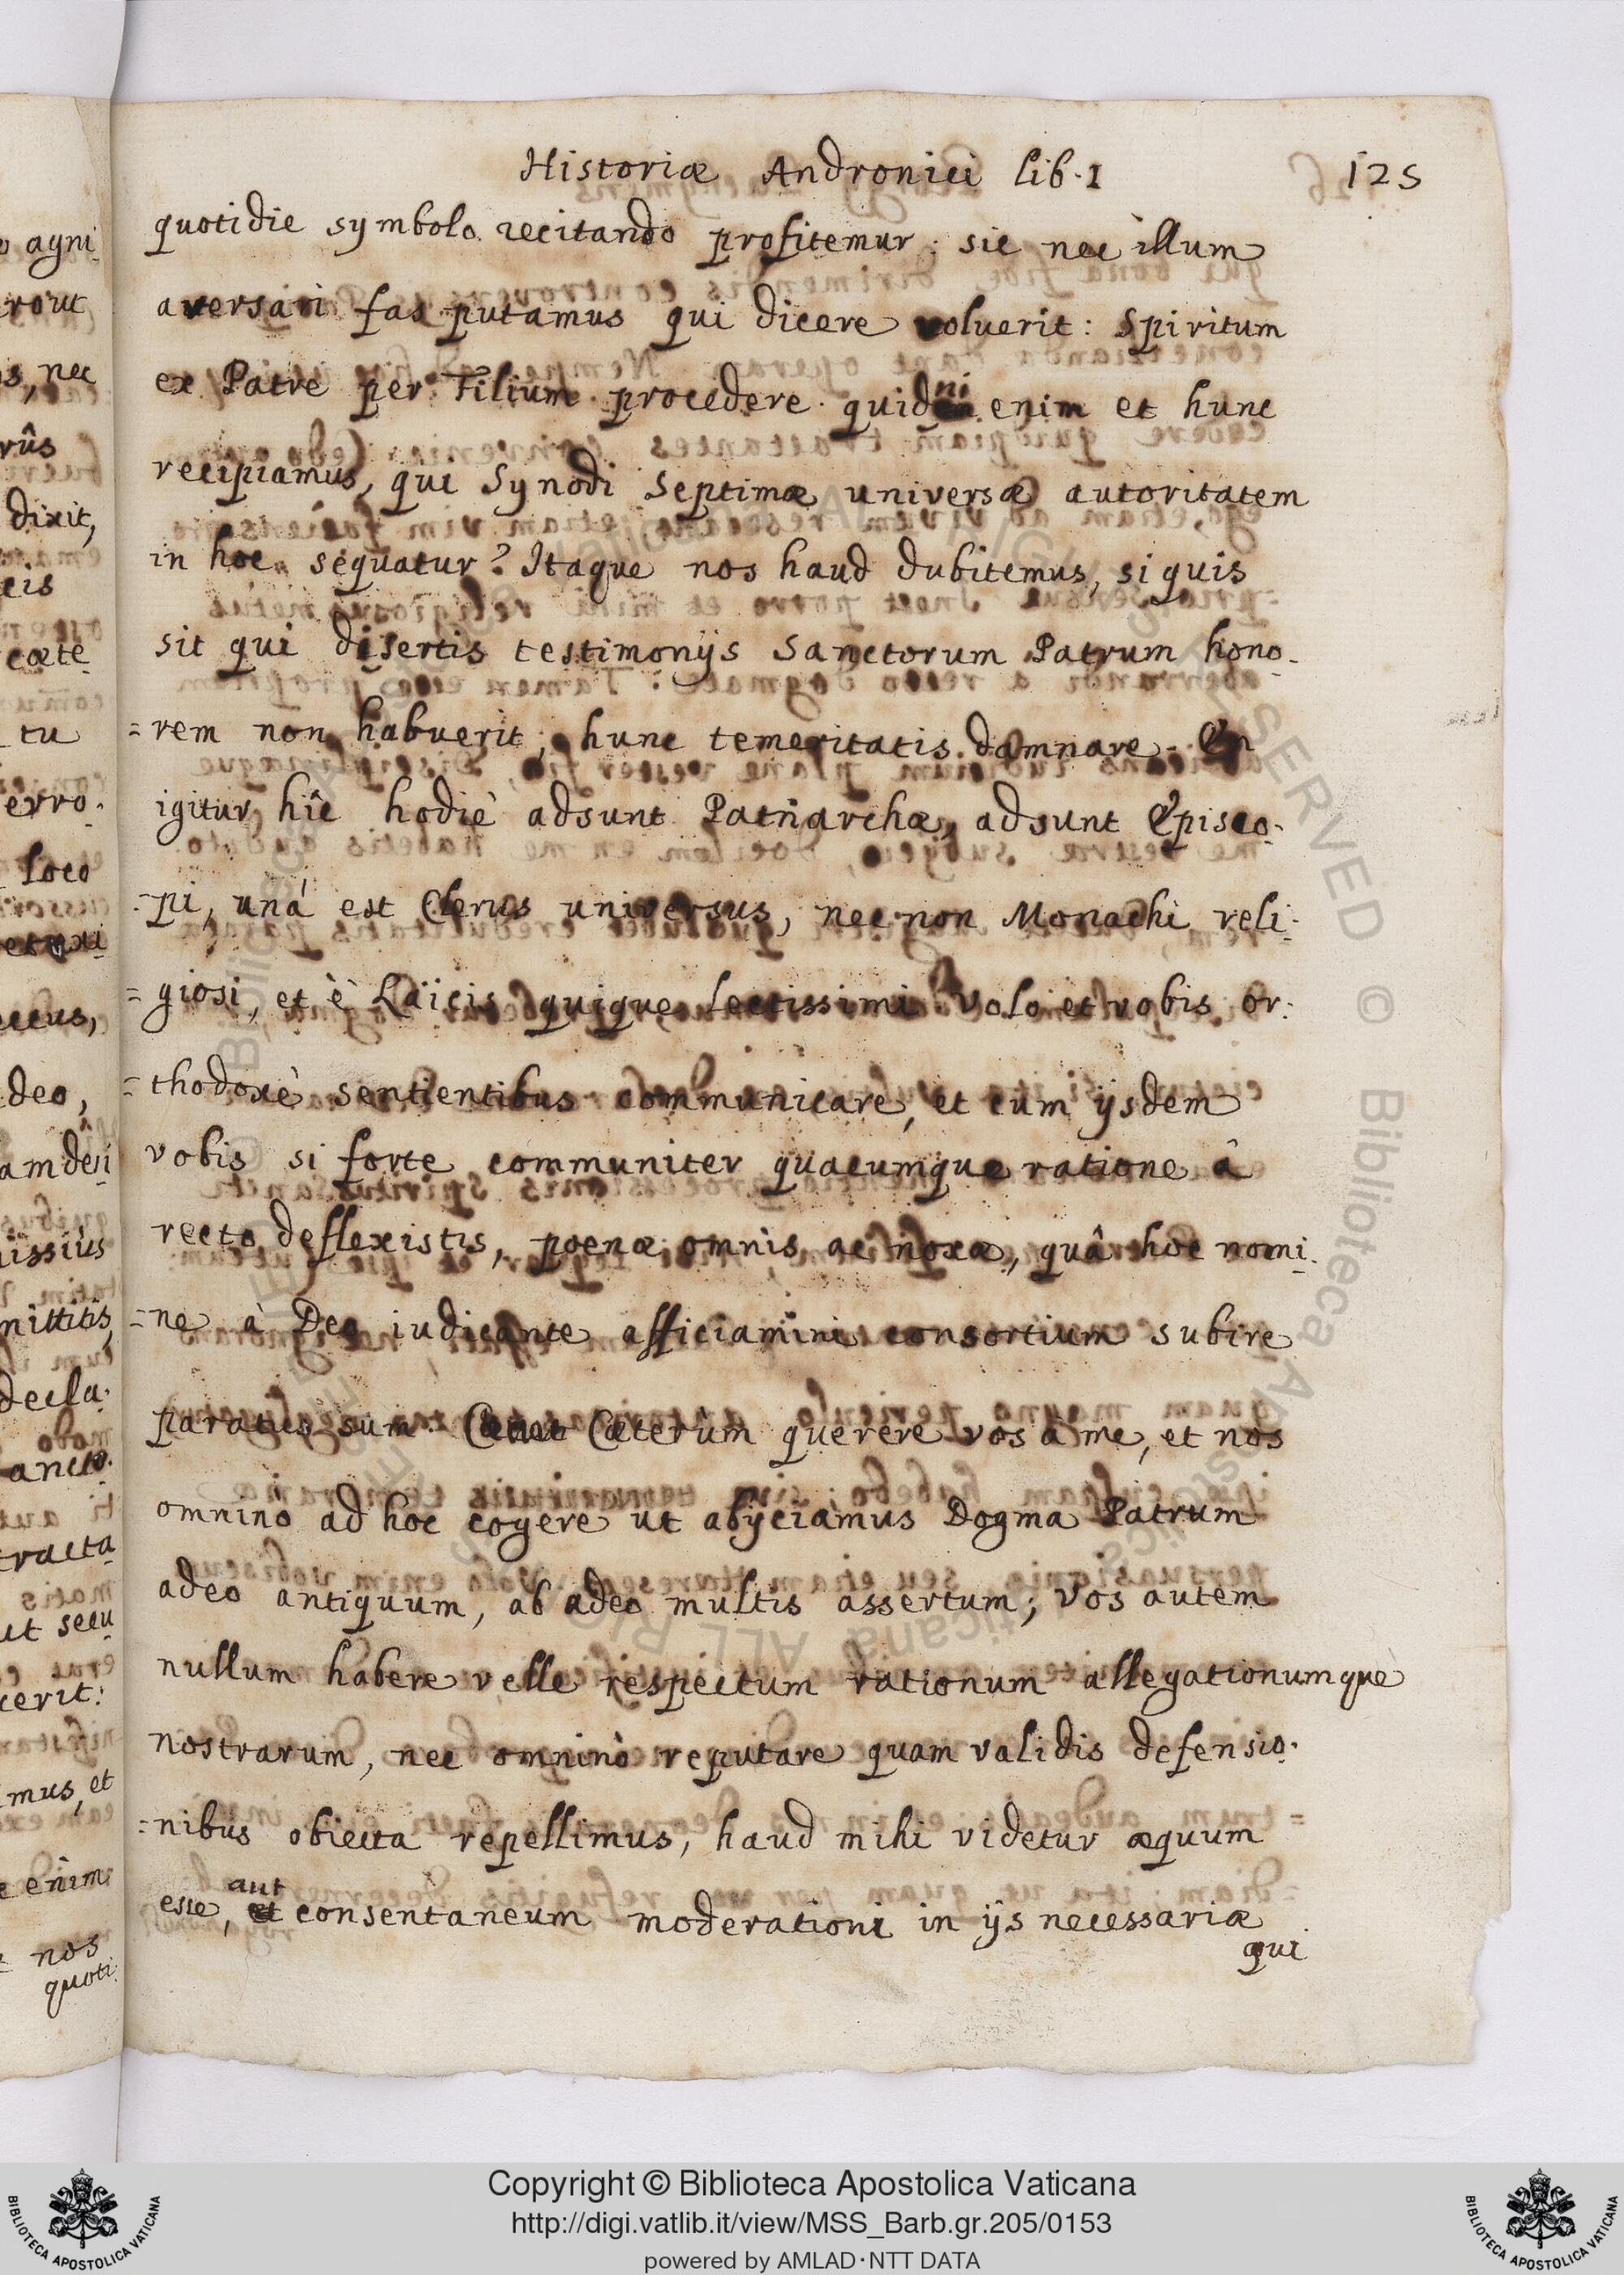 Historiæ Andronici lib. I 125
quotidie symbolo recitando profitemur: sic nec illum
aversari fas putamus qui dicere voluerit: Spiritum
ex Patre per Filium procedere. quidni enim et hunc
recipiamus, qui Synodi Septimæ universæ autoritatem
in hoc sequatur? Itaque nos haud dubitemus, si quis
sit qui disertis testimonijs Sanctorum Patrum hono-
=rem non habuerit, hunc temeritatis damnare. En
igitur hîc hodiè adsunt Patriarchæ, adsunt Episco-
=pi, unà est Clerus universus, nec non Monachi reli-
=giosi, et è Laïcis quique lectissimi. Volo et vobis or-
=thodoxè sentientibus communicare, et cum ijsdem
vobis si forte communiter quacumque ratione â
recto deflexistis, poenæ omnis ac noxæ, quâ hoc nomi-
=ne à Deo iudicante afficiamini consortium subire
paratus sum. Cæterùm querere vos à me, et nos
omninò ad hoc cogere ut abijciamus Dogma Patrum
adeo antiquum, ab adeo multis assertum; vos autem
nullum habere velle respectum rationum allegationumquè
nostrarum, nec omninò reputare quam validis defensio-
=nibus obiecta repellimus, haud mihi videtur æquum
esse, aut consentaneum moderationi in ijs necessariæ
qui
agni
rout
s, nec
rûs
dixit,
eis
cæte
tu
erro-
loco
deo,
issiùs
mittitis,
decla-
tracta
ut secu
cerit:
mus, et
enim
nos
quoti-
Copyright © Biblioteca Apostolica Vaticana
http://digi.vatlib.it/view/MSS_Barb.gr.205/0153
powered by AMLAD·NTT DATA
BIBLIOTECA APOSTOLICA VATICANA
BIBLIOTECA APOSTOLICA VATICANA